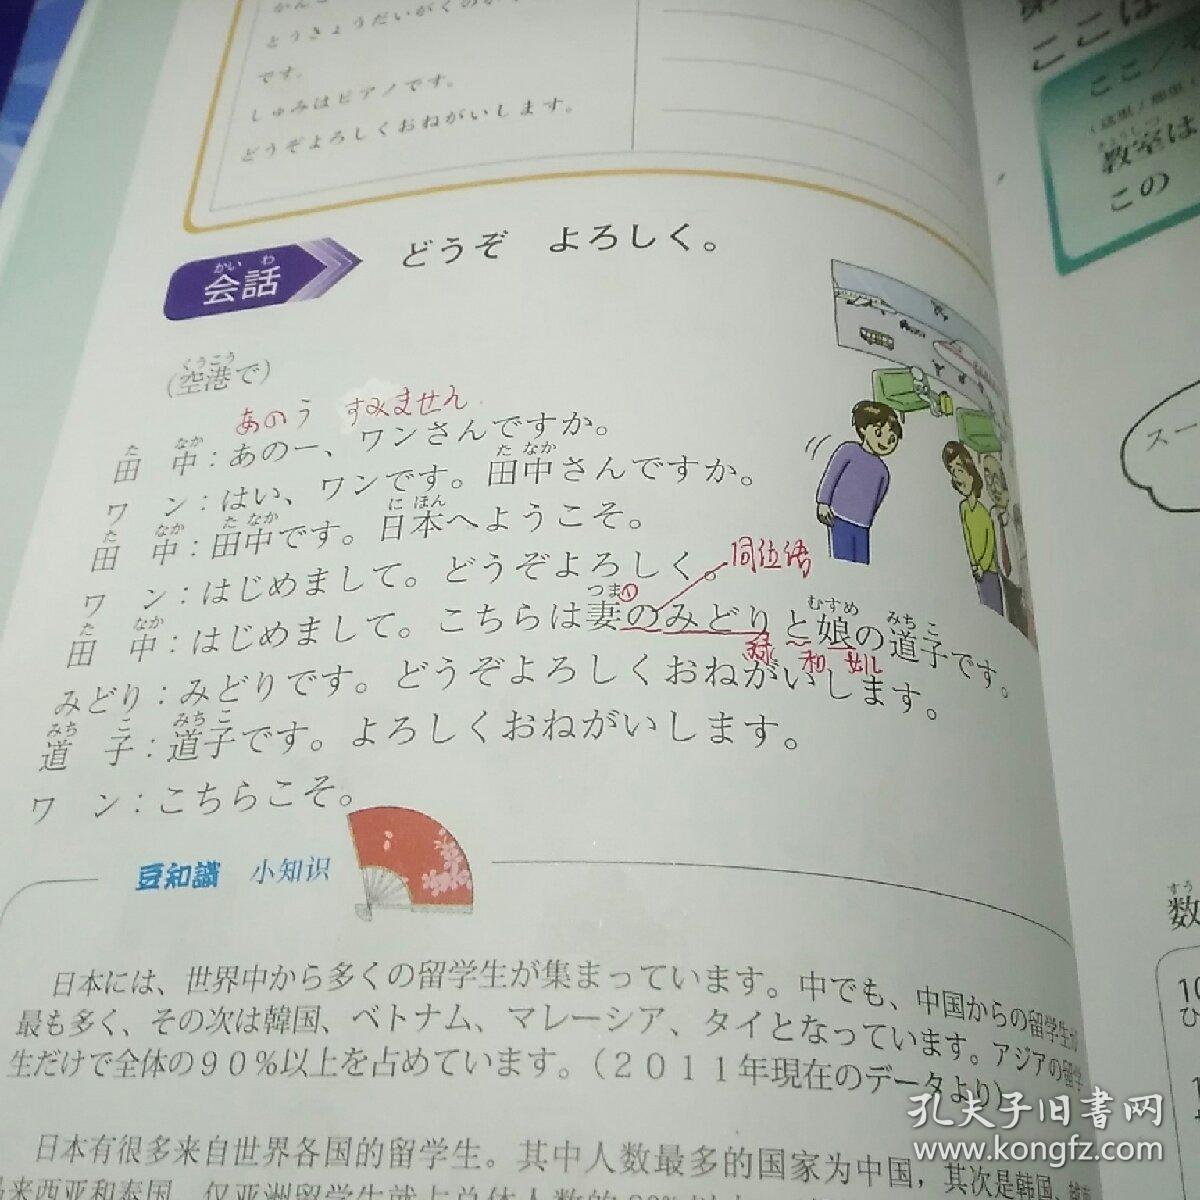 とうきょうだいがくの
です。
しゅみはピアノです。
どうぞよろしくおねがいします。
かい わ
会話
どうぞ よろしく。
くうこう
(空港で)
あのう すみません
た なか
田 中：あのー、ワンさんですか。
た なか
ワ ン：はい、ワンです。田中さんですか。
た なか た なか に ほん
田 中：田中です。日本へようこそ。
ワ ン：はじめまして。どうぞよろしく。
同位语
た なか つま むすめ みち こ
田 中：はじめまして。こちらは妻のみどりと娘の道子です。
和 女儿
みどり：みどりです。どうぞよろしくおねがいします。
みち こ みち こ
道 子：道子です。よろしくおねがいします。
ワ ン：こちらこそ。
豆知識 小知识
日本には、世界中から多くの留学生が集まっています。中でも、中国からの留学生が
最も多く、その次は韓国、ベトナム、マレーシア、タイとなっています。アジアの留学
生だけで全体の９０％以上を占めています。（２０１１年現在のデータより）
日本有很多来自世界各国的留学生。其中人数最多的国家为中国，其次是韩国、
来西亚和泰国
ここは
ここ／
教室は
この
スー
すう
数
10
ひ
孔夫子旧書网
www.kongfz.com